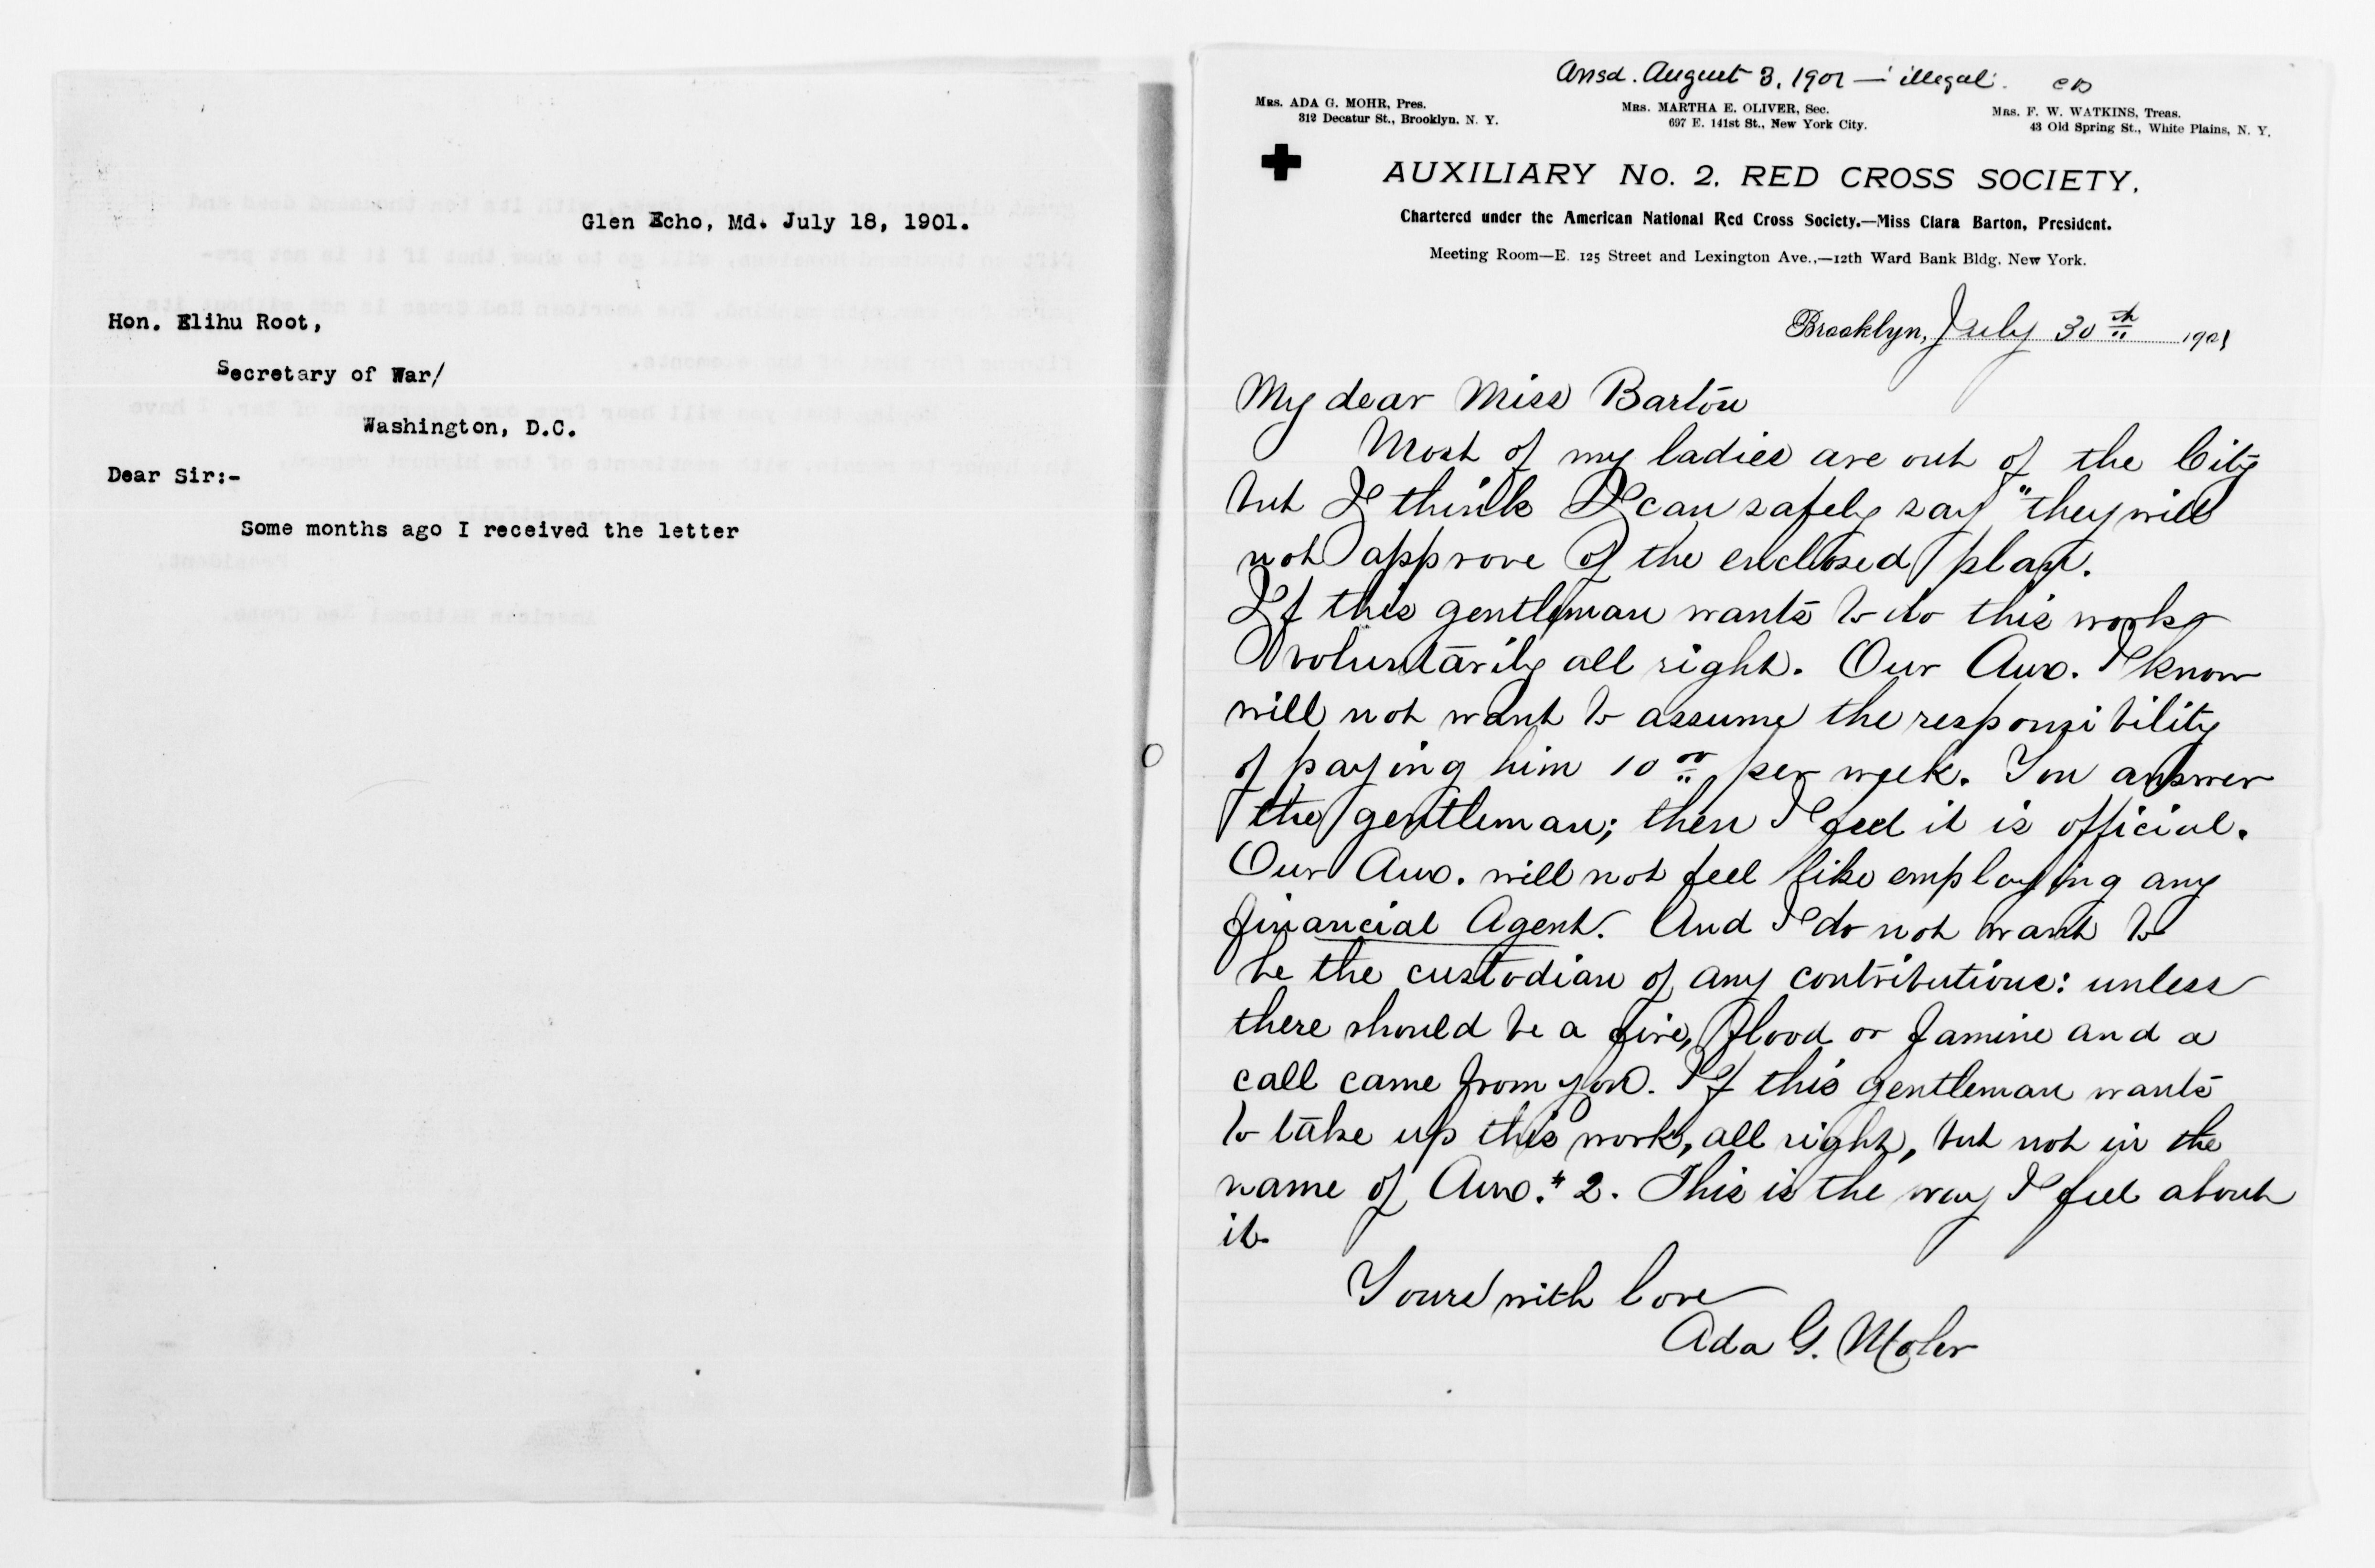 Glen Echo, Md. July 18, 1901.
Hon. Elihu Root,
Secretary of War/
Washington, D.C.
Dear Sir:-
Some months ago I received the letter
Ansd. August 3, 1901 — illegal. CB
Mrs. ADA G. MOHR, Pres.
312 Decatur St., Brooklyn, N. Y.
Mrs. MARTHA E. OLIVER, Sec.
697 E. 141st St., New York City.
Mrs. F. W. WATKINS, Treas.
43 Old Spring St., White Plains, N. Y.
AUXILIARY No. 2, RED CROSS SOCIETY,
Chartered under the American National Red Cross Society.—Miss Clara Barton, President.
Meeting Room—E. 125 Street and Lexington Ave.,—12th Ward Bank Bldg. New York.
Brooklyn, July 30th 1901
My dear Miss Barton
Most of my ladies are out of the City
but I think I can safely say "they will
not approve of the enclosed plan.
If this gentleman wants to do this work
voluntarily all right. Our Aux. I know
will not want to assume the responsibility
of paying him 10 00 per week. You answer
the gentleman; then I feel it is official.
Our Aux. will not feel like employing any
financial Agent. And I do not want to
be the custodian of any contributions: unless
there should be a fire, flood or famine and a
call came from you. If this gentleman wants
to take up this work, all right, but not in the
name of Aux. # 2. This is the way I feel about
it.
Yours with love
Ada G. Mohr